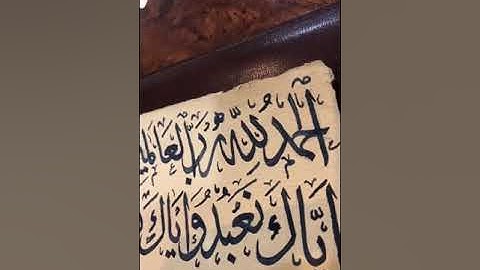 الحمد لله رب العالمين
إياك نعبد وإياك